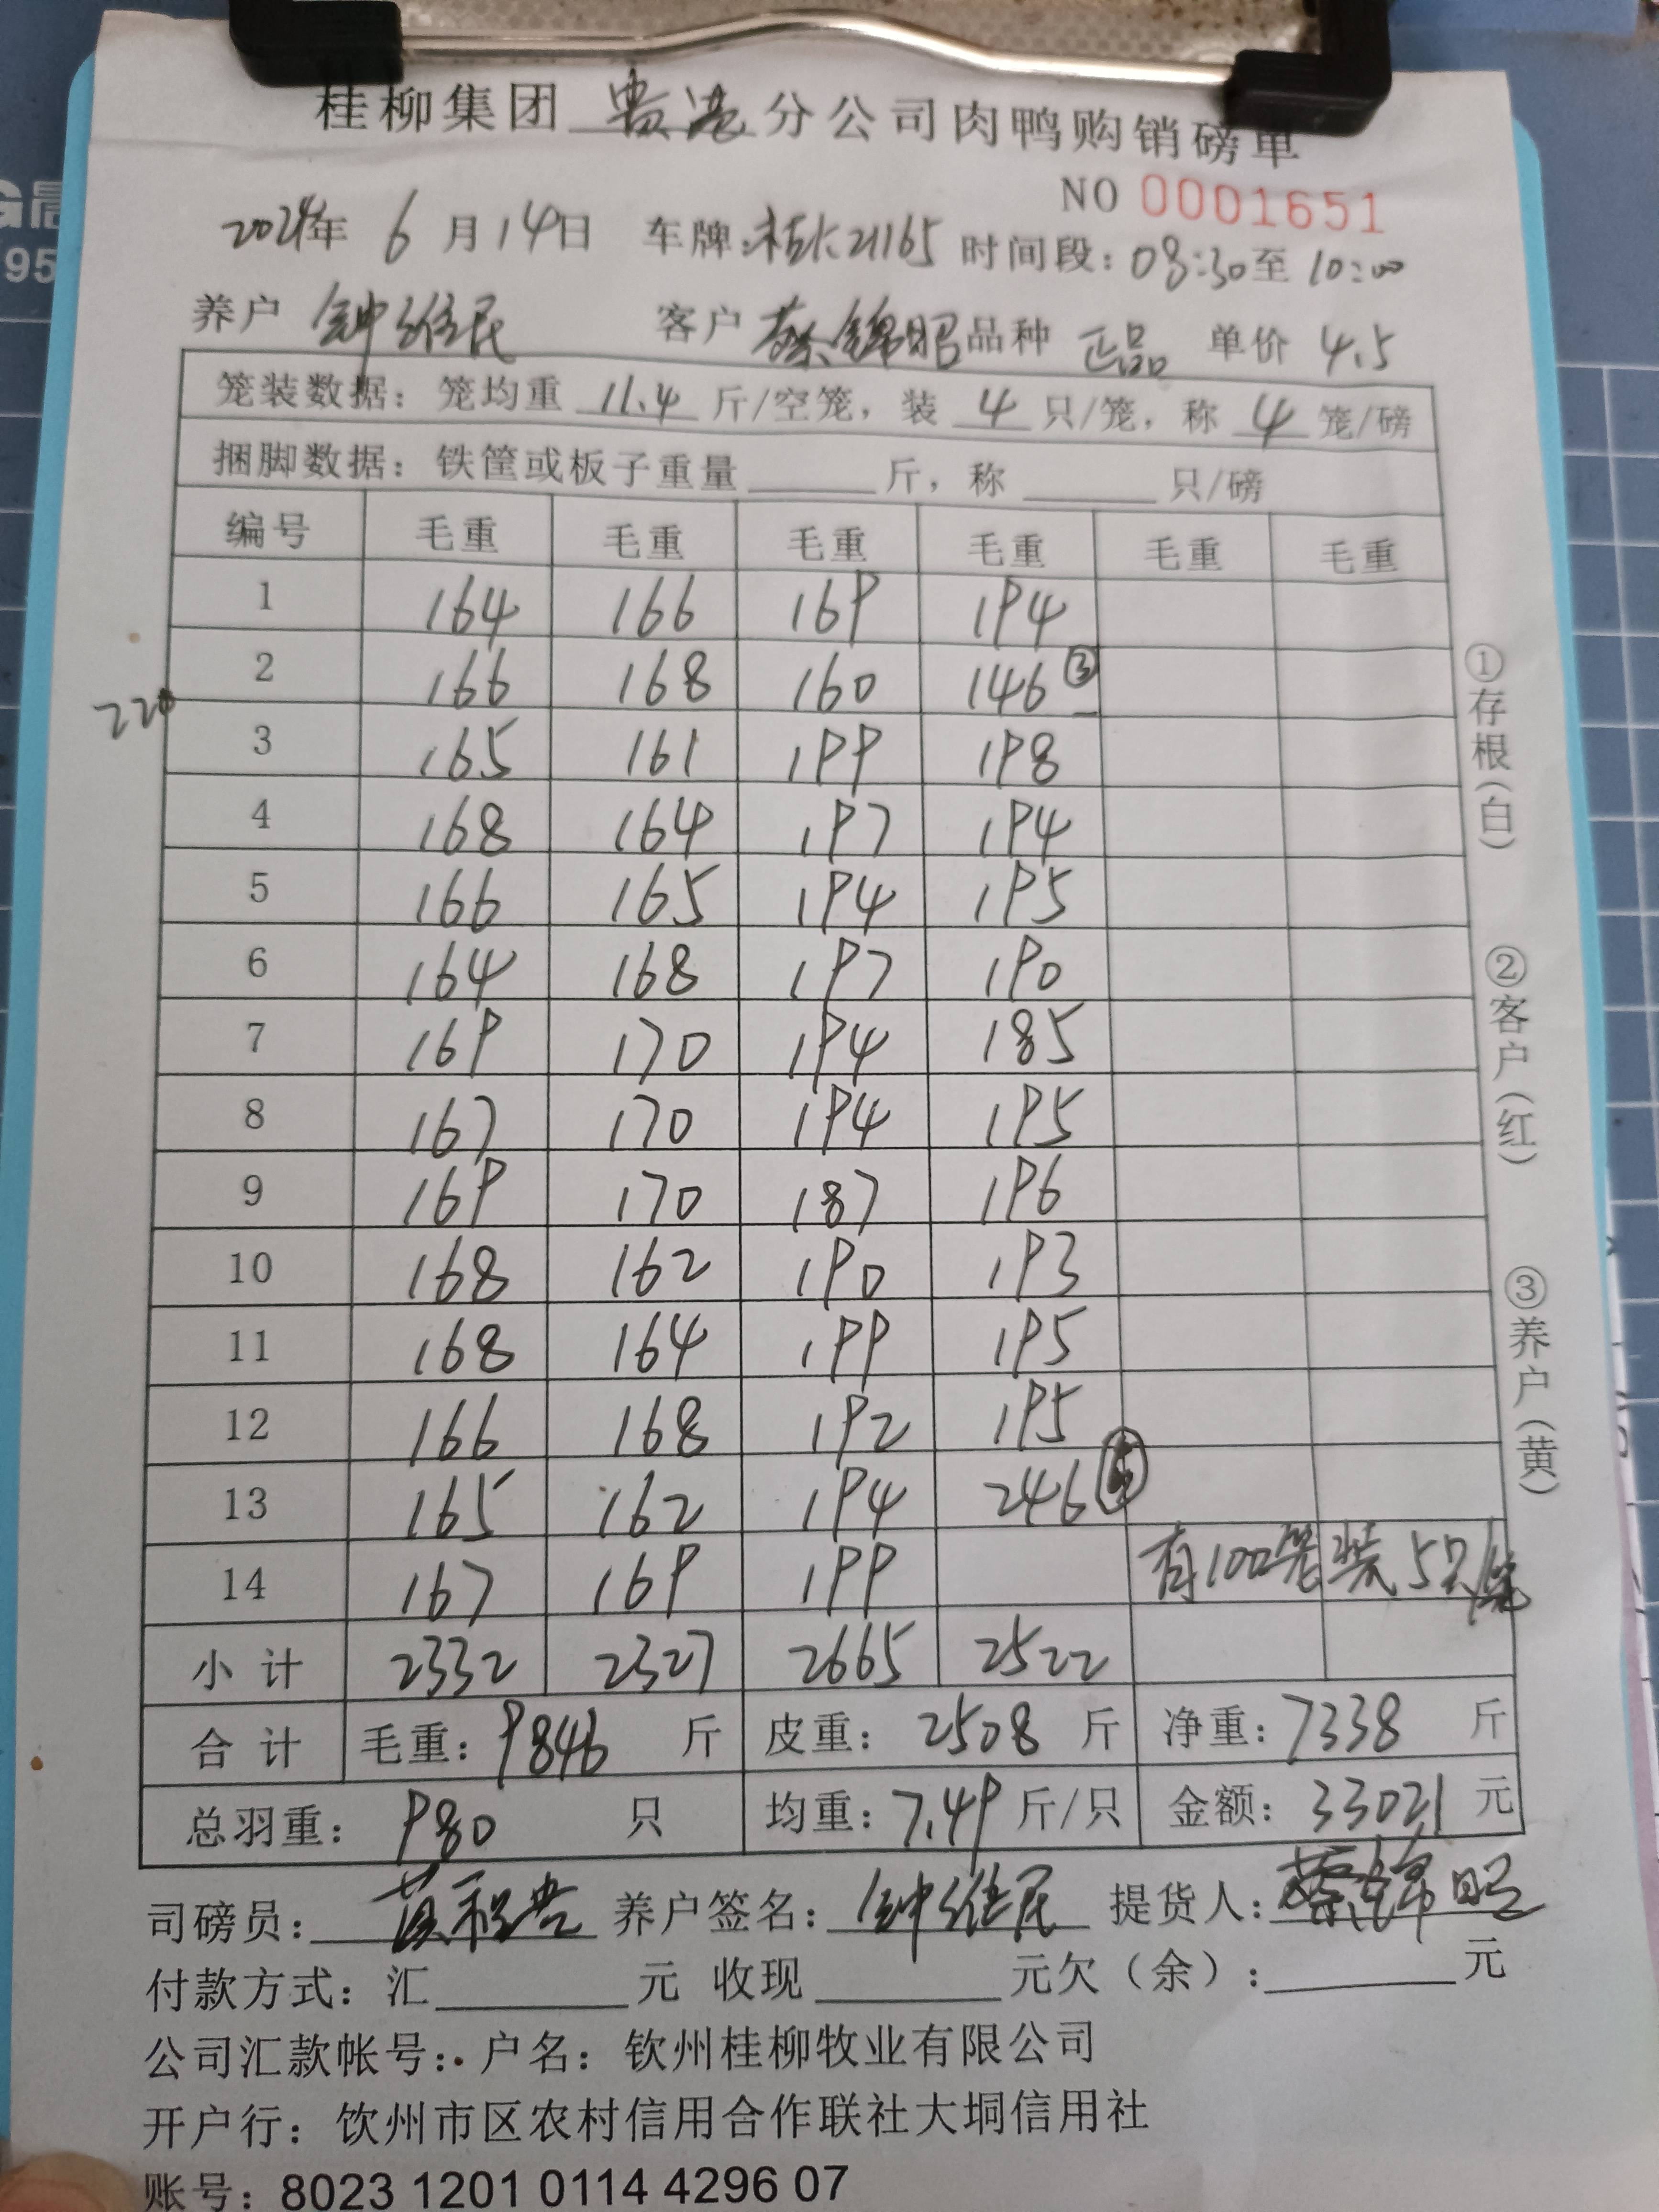 桂柳集团 贵港 分公司肉鸭购销磅单
NO 0001651
2024年 6 月 14 日 车牌:桂K21165 时间段：08:30 至 10:00
养户 钟维民 客户 蔡锦昭 品种 正品 单价 4.5
笼装数据：笼均重 11.4 斤/空笼，装 4 只/笼，称 4 笼/磅
捆脚数据：铁筐或板子重量 斤，称 只/磅
编号 毛重 毛重 毛重 毛重 毛重 毛重
1 164 166 169 194
2 166 168 160 146 ③
220
3 165 161 199 198
4 168 164 197 194
5 166 165 194 195
6 164 168 197 190
7 169 170 194 185
8 167 170 194 195
9 169 170 187 196
10 168 162 190 193
11 168 164 199 195
12 166 168 192 195
13 165 162 194 246
14 167 169 199 有100笼装5只/笼
小计 2332 2327 2665 2522
合计 毛重：9846 斤 皮重：2508 斤 净重：7338 斤
总羽重：980 只 均重：7.49 斤/只 金额：33021 元
①存根（白） ②客户（红） ③养户（黄）
司磅员： 养户签名：钟维民 提货人：蔡锦昭
付款方式：汇 元 收现 元欠（余）： 元
公司汇款帐号：户名：钦州桂柳牧业有限公司
开户行：饮州市区农村信用合作联社大垌信用社
账号：8023 1201 0114 4296 07
G晨
95